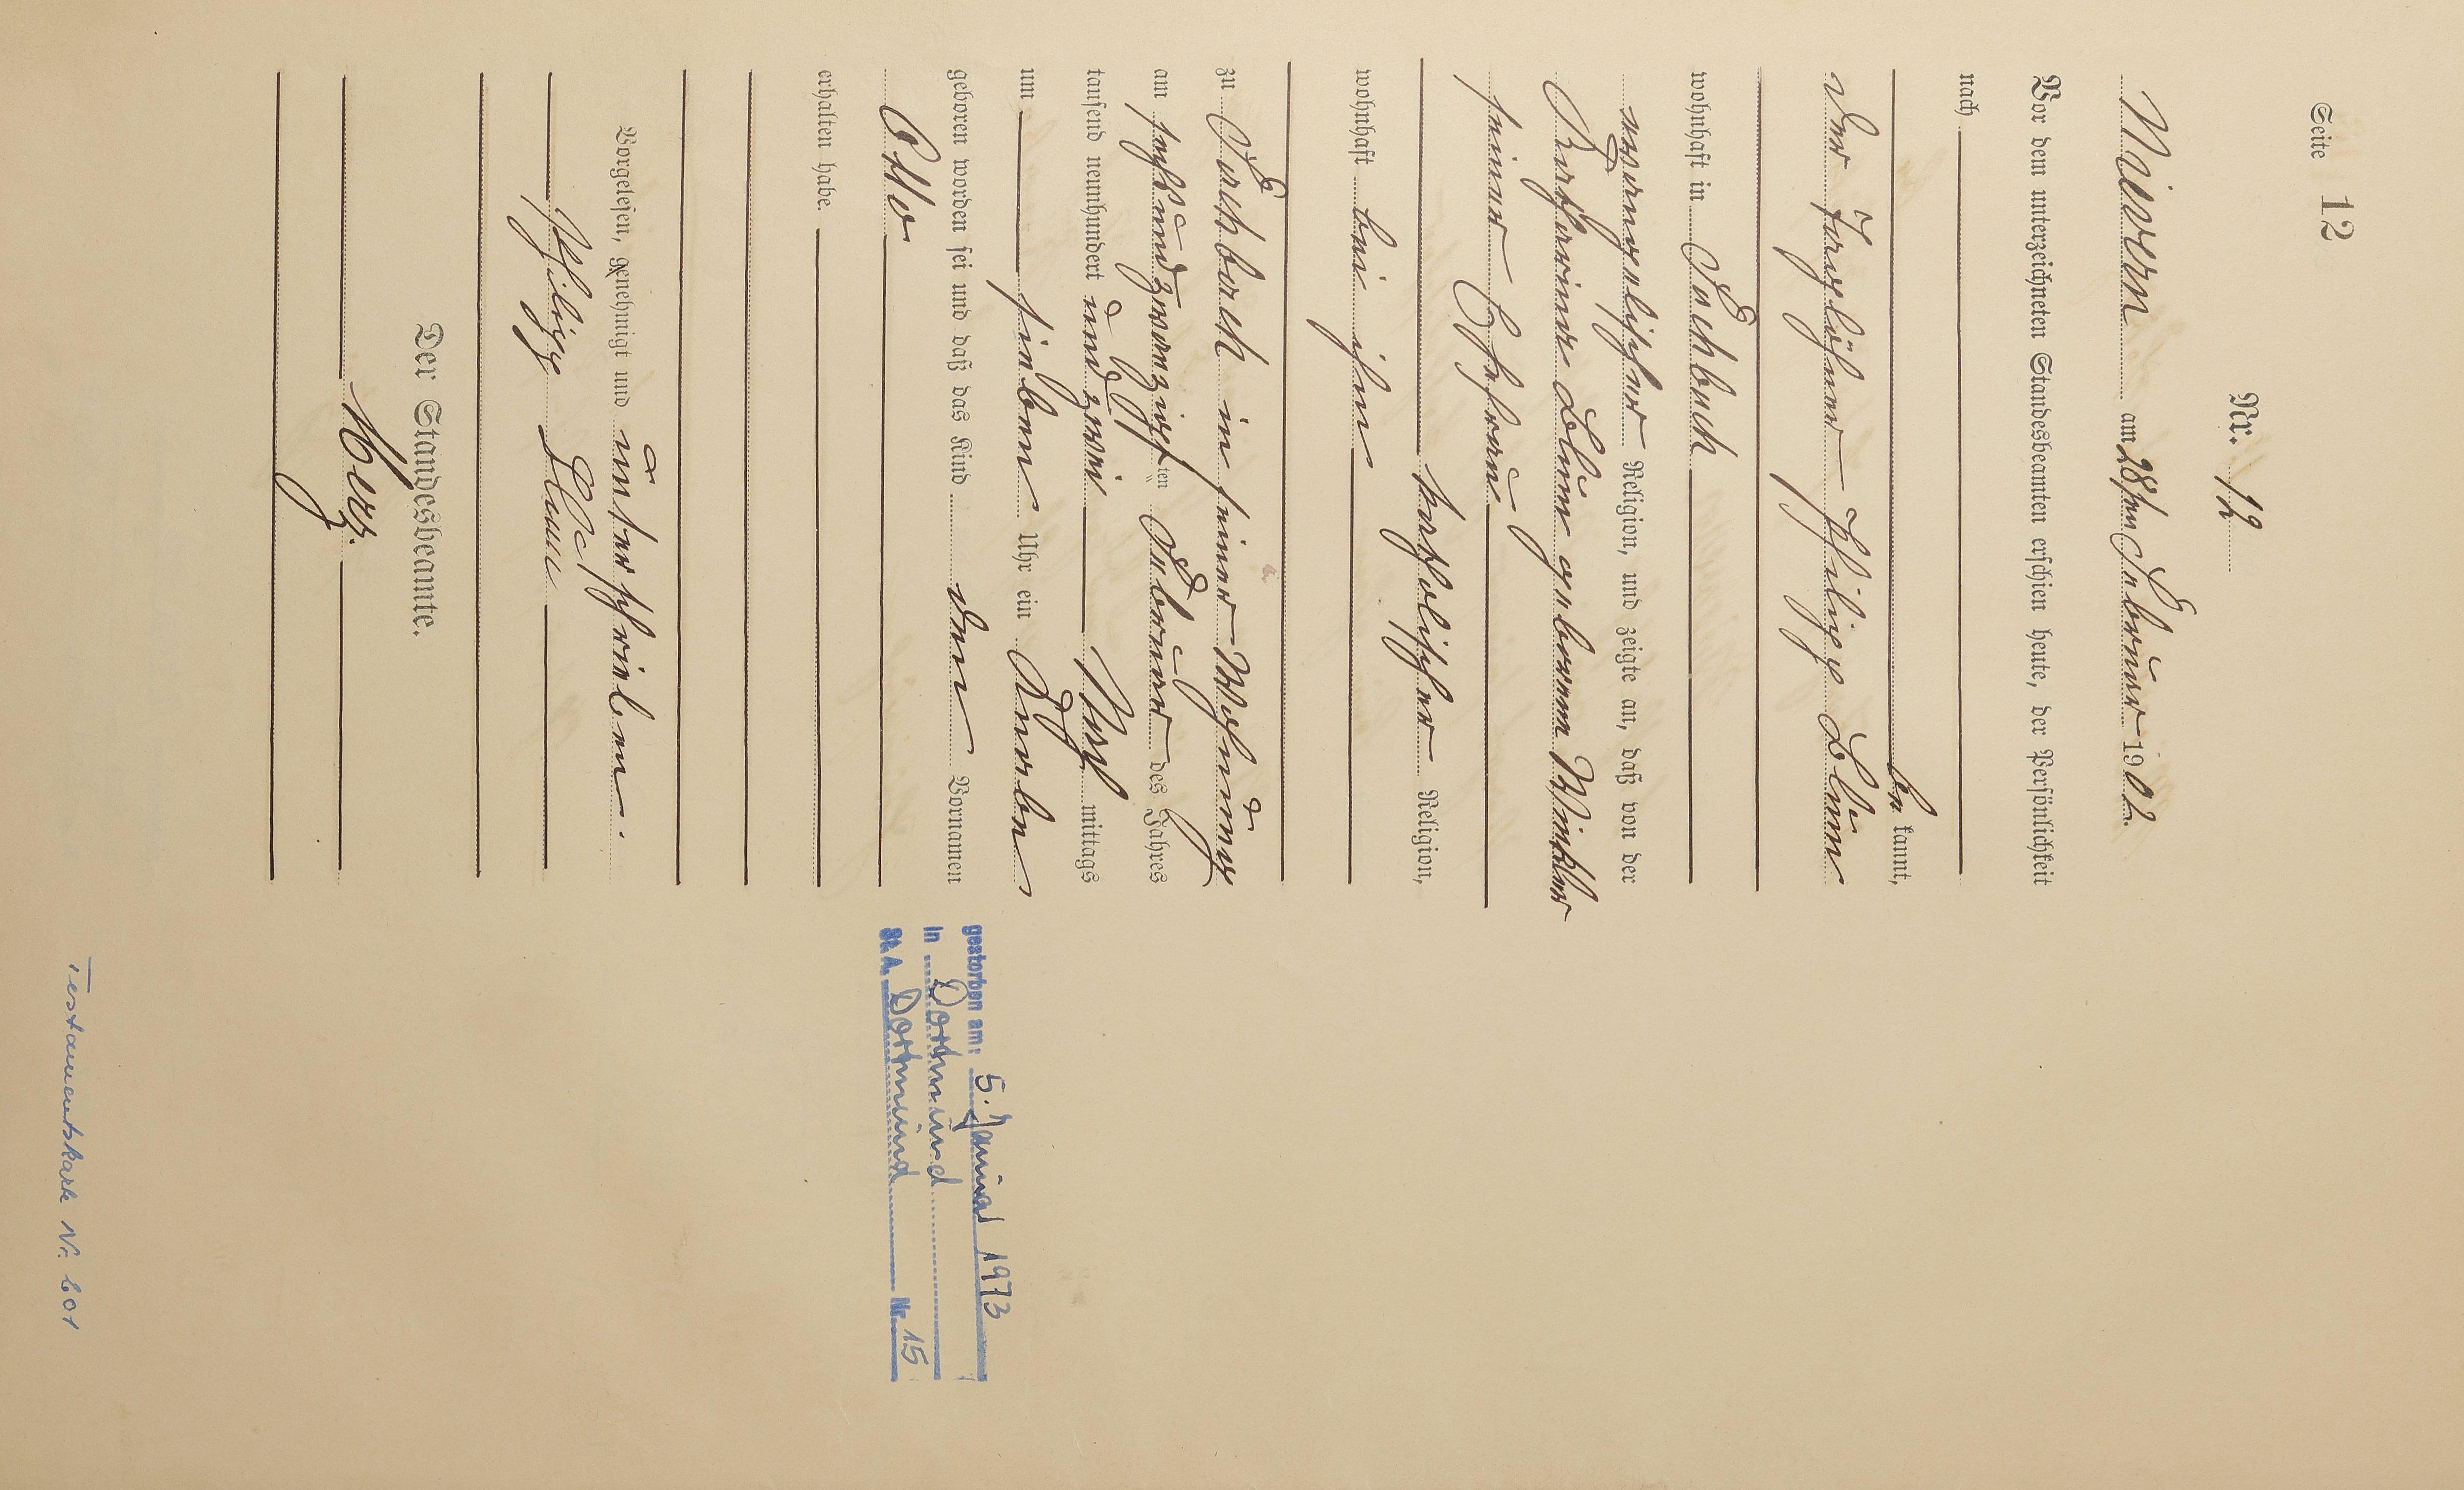 Seite 12
Nr. 12
Nievern am 28ten Februar 1902.
Vor dem unterzeichneten Standesbeamten erschien heute, der Persönlichkeit
nach
be kannt,
der Tagelöhner Philipp Blum
wohnhaft in Fachbach
evangelischer Religion, und zeigte an, daß von der
Katharina Blum geborenen Winkler
seiner Ehefrau
katholischer Religion,
wohnhaft bei ihm
zu Fachbach in seiner Wohnung
am sechsundzwanzigsten Februar des Jahres
tausend neunhundert und zwei Nach mittags
um sieben Uhr ein Knabe
geboren worden sei und daß das Kind den Vornamen
Otto
erhalten habe.
Vorgelesen, genehmigt und unterschrieben.
Philipp Blum
Der Standesbeamte.
gestorben am: 5. Januar 1973
in Dortmund
St.A. Dortmund Nr. 15
Testamentskarte Nr. 601